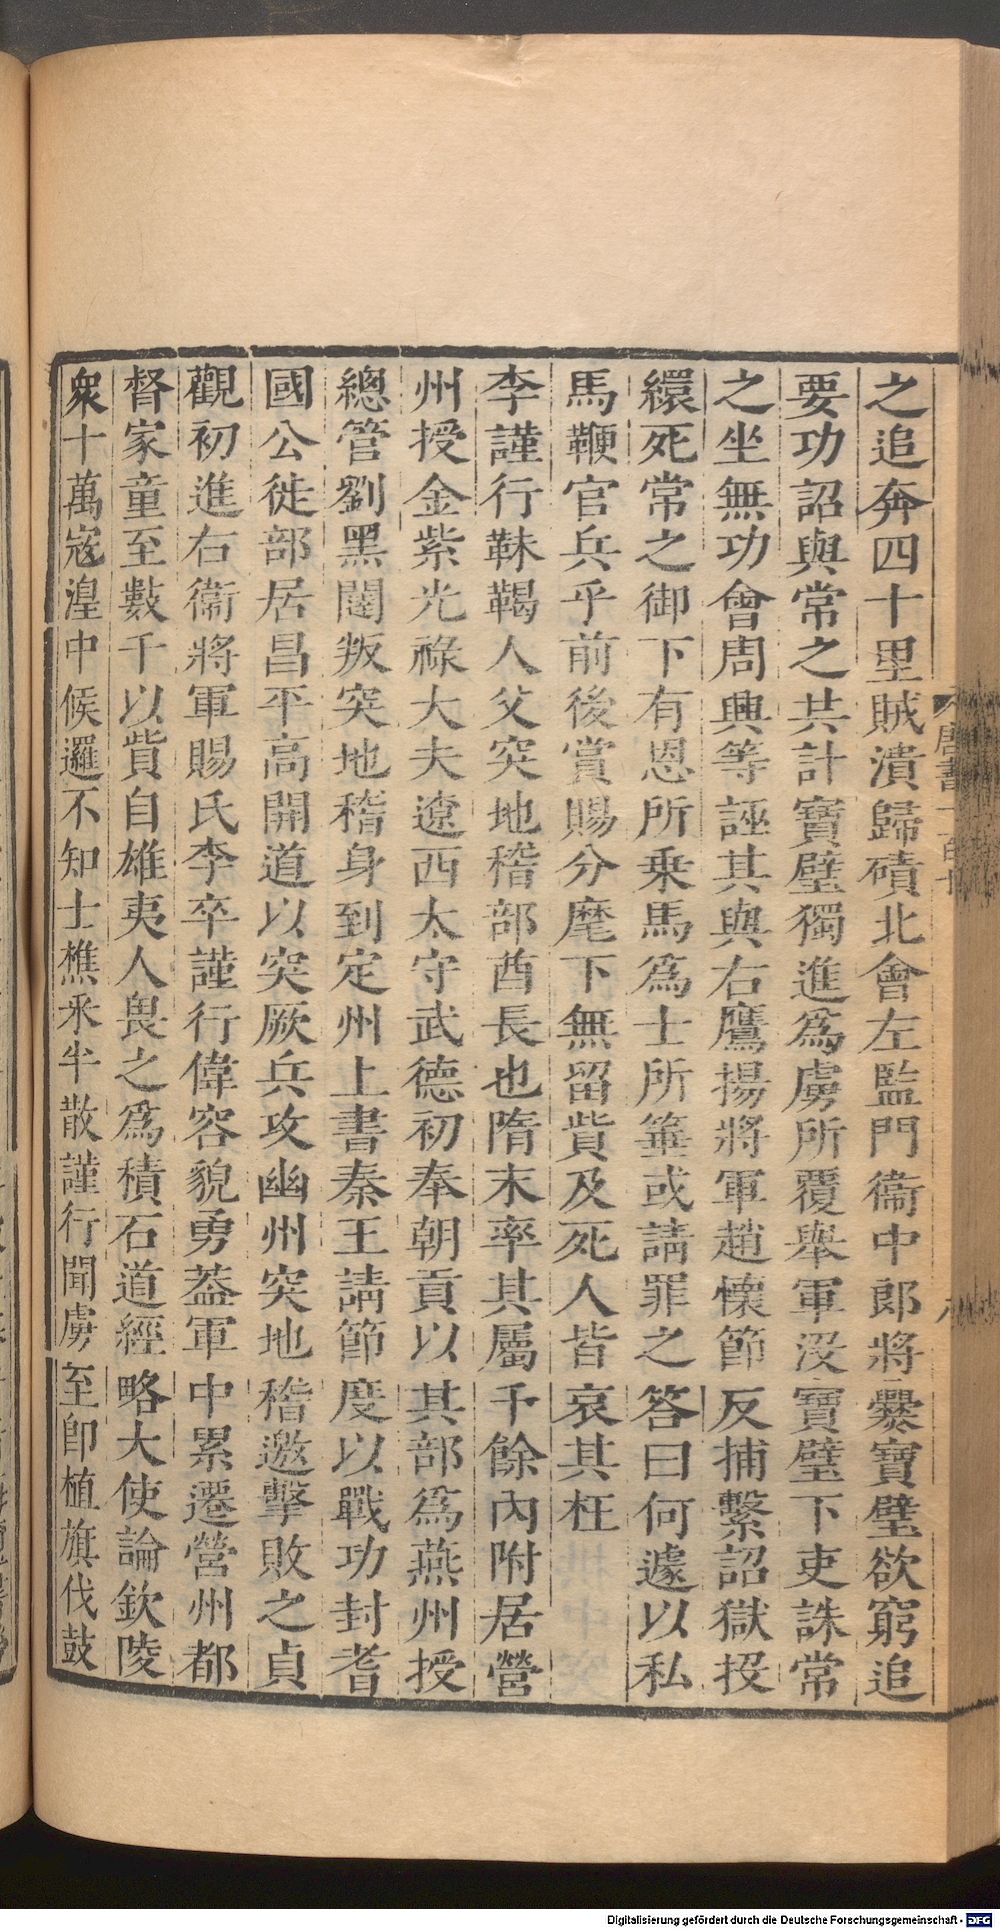 之追奔四十里賊潰歸磧北會左監門衞中郎將爨寶璧欲窮追
要功詔與常之共計寶璧獨進爲虜所覆舉軍沒寶璧下吏誅常
之坐無功會周興等誣其與右鷹揚將軍趙懷節反捕繫詔獄投
繯死常之御下有恩所乗馬爲士所箠或請罪之答曰何遽以私
馬鞭官兵乎前後賞賜分麾下無留貲及死人皆哀其枉
李謹行靺鞨人父突地稽部酋長也隋末率其屬千餘內附居營
州授金紫光祿大夫遼西太守武德初奉朝貢以其部爲燕州授
總管劉黑闥叛突地稽身到定州上書秦王請節度以戰功封耆
國公徙部居昌平高開道以突厥兵攻幽州突地稽邀擊敗之貞
觀初進右衞將軍賜氏李卒謹行偉容貌勇蓋軍中累遷營州都
督家童至數千以貲自雄夷人畏之爲積石道經略大使論欽陵
衆十萬寇湟中候邏不知士樵采半散謹行聞虜至卽植旗伐鼓
唐書一百十
八
Digitalisierung gefördert durch die Deutsche Forschungsgemeinschaft - DFG